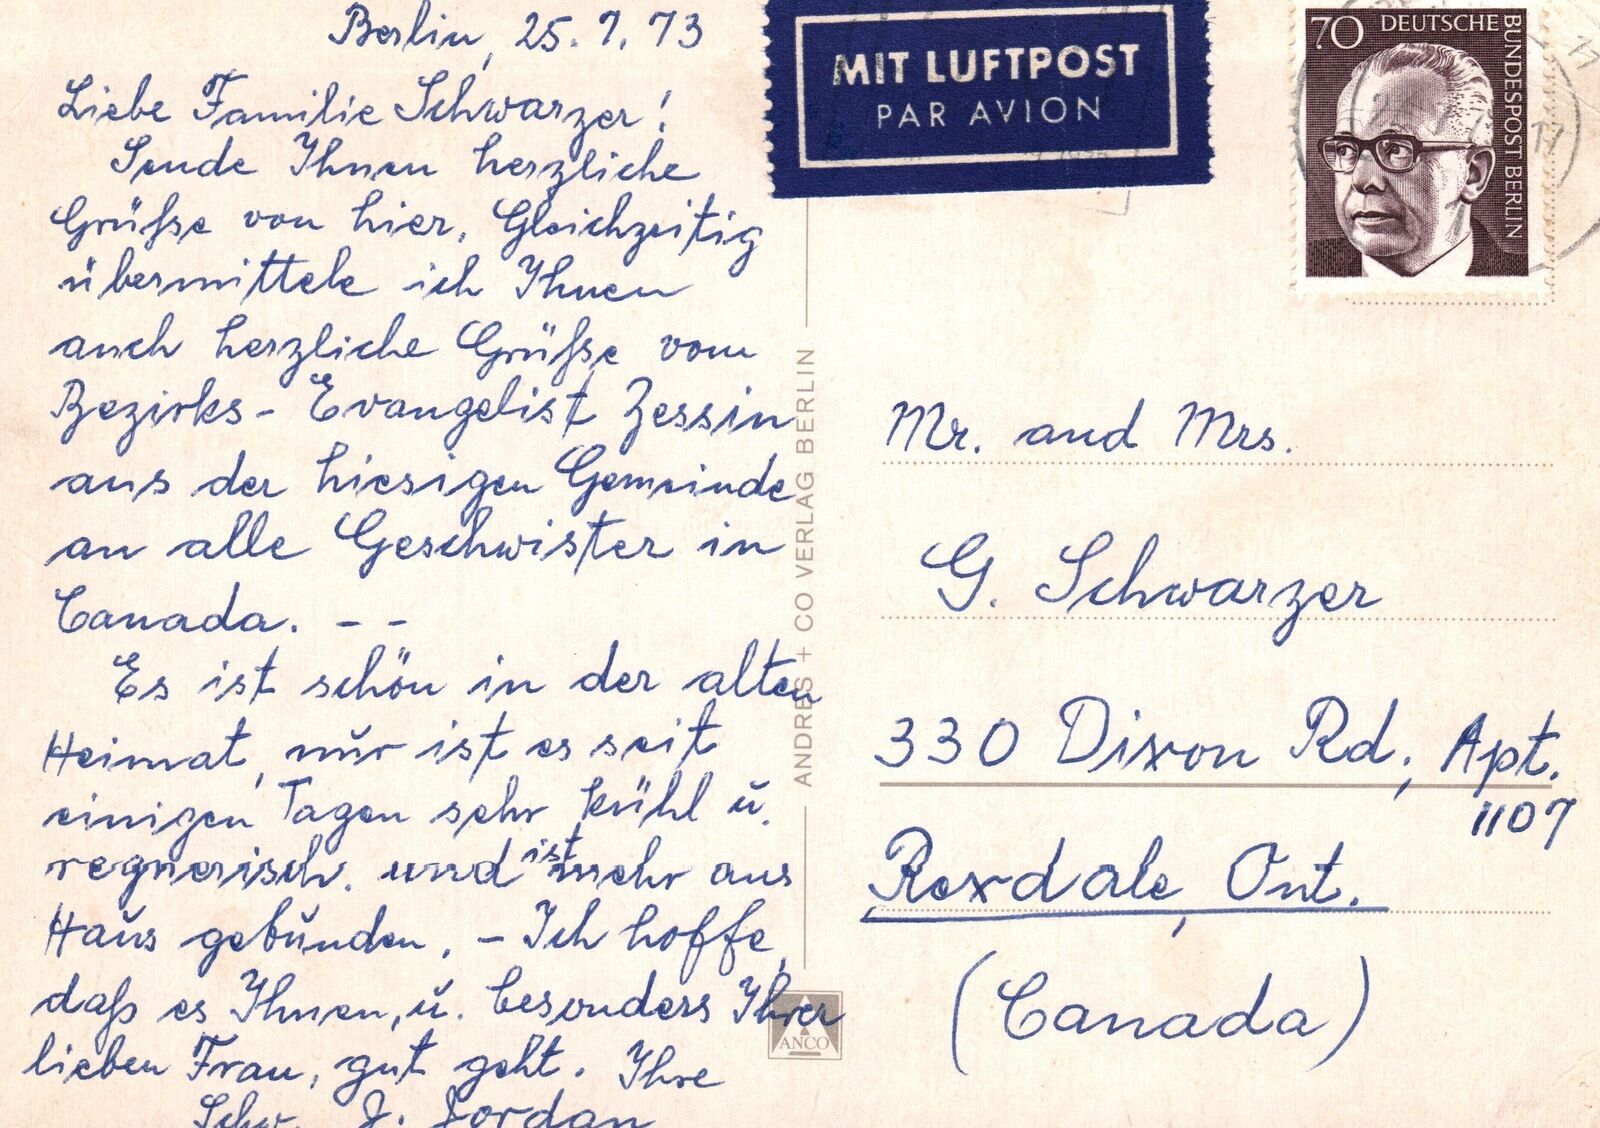 Berlin, 25.7.73
Liebe Familie Schwarzer!
Sende Ihnen herzliche
Grüße von hier. Gleichzeitig
übermittele ich Ihnen
auch herzliche Grüße vom
Bezirks-Evangelist Zessin
aus der hiesigen Gemeinde
an alle Geschwister in
Canada. - -
Es ist schön in der alten
Heimat, nur ist es seit
einigen Tagen sehr kühl u.
regnerisch. und ist mehr aus
Haus gebunden. - Ich hoffe,
daß es Ihnen, u. besonders Ihrer
lieben Frau, gut geht. Ihre
Schw. J. Jordan
MIT LUFTPOST
PAR AVION
70 DEUTSCHE
BUNDESPOST BERLIN
ANDRES + CO VERLAG BERLIN
ANCO
Mr. and Mrs.
G. Schwarzer
330 Dixon Rd, Apt.
1107
Rexdale, Ont.
(Canada)